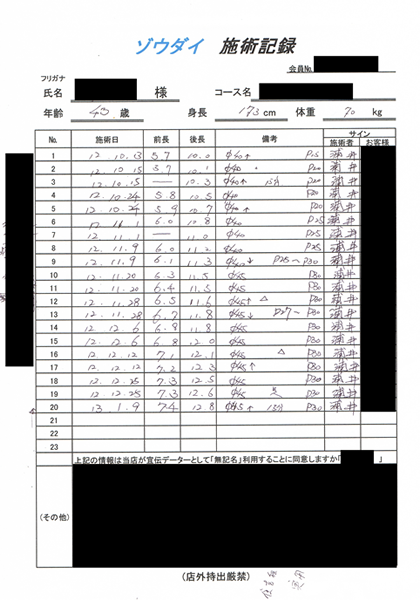 ゾウダイ 施術記録
会員No.
フリガナ
氏名 様 コース名
年齢 43 歳 身長 173 cm 体重 70 kg
No. 施術日 前長 後長 備考 サイン
施術者 お客様
1 12.10.13 5.7 10.0 φ40↑ P15
2 12.10.15 5.7 10.1 φ40 P20
3 12.10.15 — 10.3 φ40↑ 15分 P20
4 12.10.24 5.8 10.5 φ40 P20
5 12.10.24 5.9 10.7 φ40↑ P20
6 6.0 10.8 φ40 P25
7 12.11.1 — 11.0 φ40 P25
8 12.11.9 6.0 11.2 φ40 P25
9 12.11.9 6.1 11.3 P25→P30
10 12.11.20 6.3 11.5 φ45 P30
11 12.11.20 6.4 11.5 φ45 P30
12 12.11.28 6.5 11.6 φ45↑ △ P30
13 12.11.28 6.7 11.8 φ45↓ P30
14 12.12.6 6.9 11.8 φ45 P30
15 12.12.6 6.8 12.0 φ45 P30
16 12.12.12 7.1 12.1 φ45 △ P30
17 12.12.12 7.2 12.3 φ45↑ P30
18 12.12.25 7.3 12.5 φ45 P30
19 12.12.25 7.3 12.6 φ45 P30
20 13.1.9 7.4 12.8 φ45↑ 15分 P30
21
22
23
上記の情報は当店が宣伝データーとして「無記名」利用することに同意しますか「 」
(その他)
(店外持出厳禁)